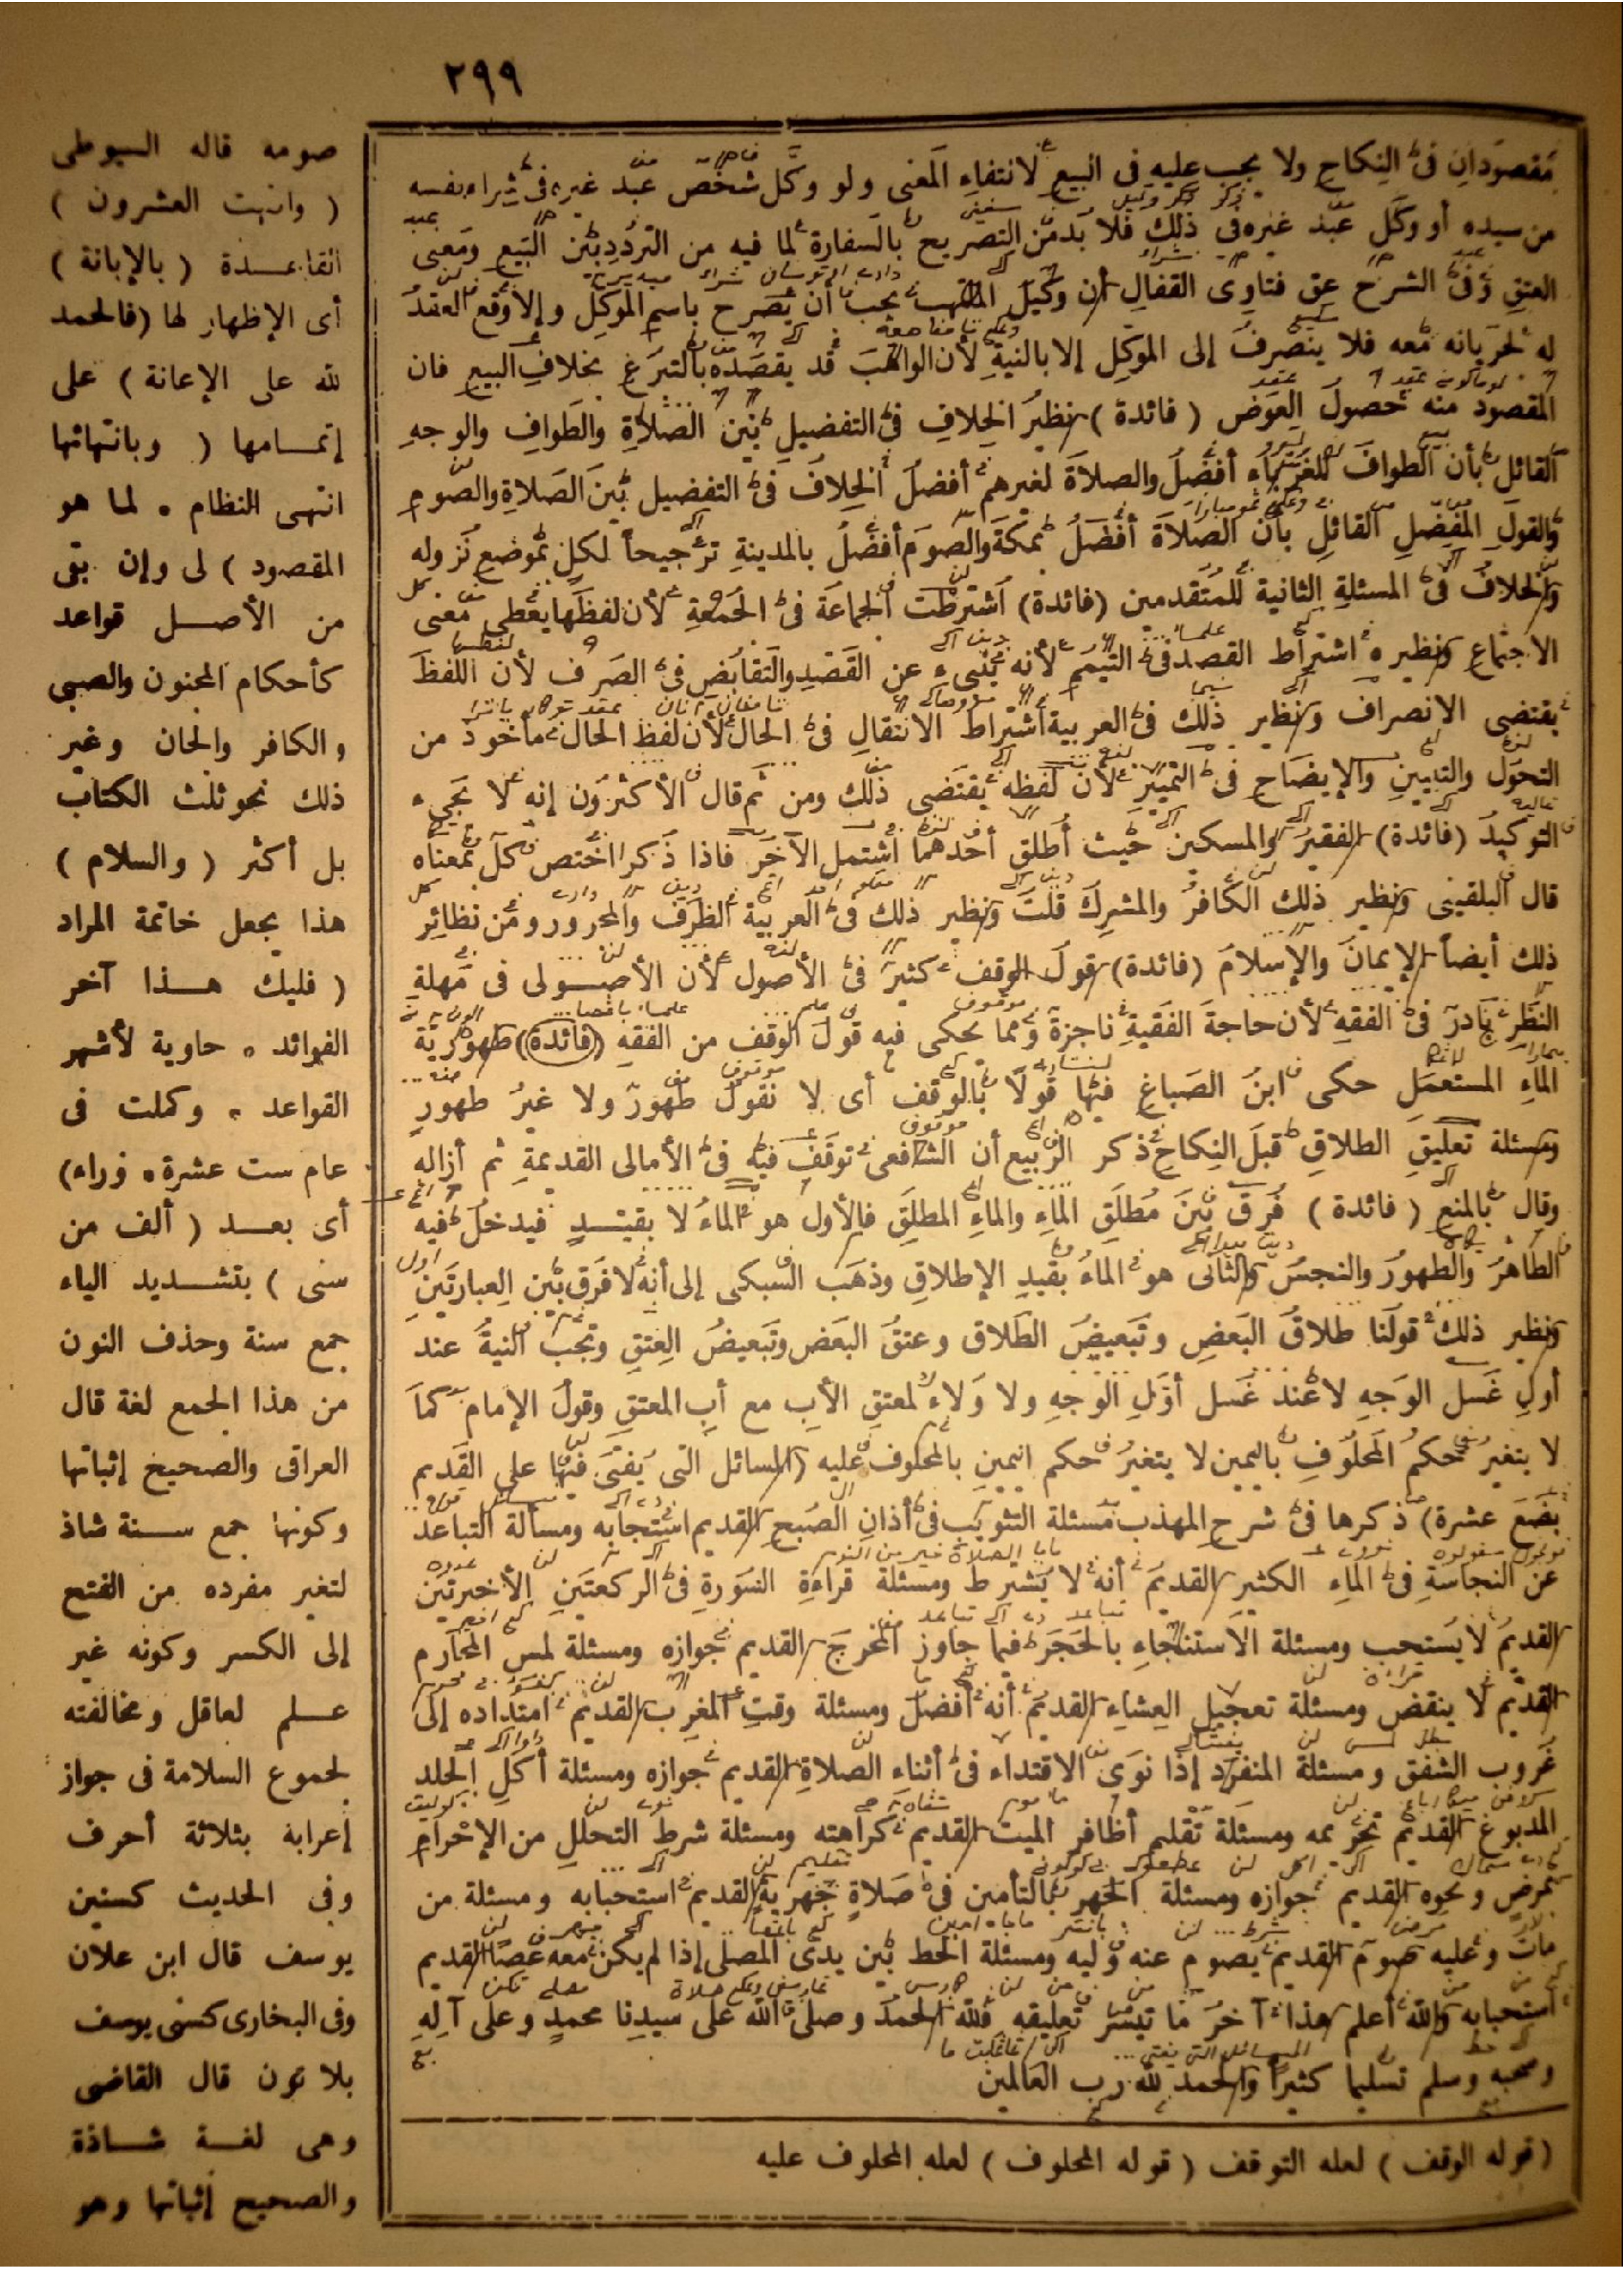 ٢٩٩
مقصودان في النكاح ولا يجب عليه في البيع لانتفاء المعنى ولو وكل شخص عبد غيره في شراء نفسه
من سيده أو وكل عبد غيره في ذلك فلا بد من التصريح بالسفارة لما فيه من التردد بين البيع ومعنى
العتق وفي الشرح عن فتاوى القفال أن وكيل المتهب يجب أن يصرح باسم الموكل وإلا وقع العقد
له لجريانه معه فلا ينصرف إلى الموكل إلا بالنية لأن الواهب قد يقصده بالتبرع بخلاف البيع فان
المقصود منه حصول العوض ( فائدة ) نظير الخلاف في التفضيل بين الصلاة والطواف والوجه
القائل بأن الطواف للغرباء أفضل والصلاة لغيرهم أفضل الخلاف في التفضيل بين الصلاة والصوم
والقول المفضل القائل بأن الصلاة أفضل بمكة والصوم أفضل بالمدينة ترجيحاً لكل بموضع نزوله
والخلاف في المسئلة الثانية للمتقدمين (فائدة) اشترطت الجماعة في الجمعة لأن لفظها يعطى معنى
الاجتماع ونظيره اشتراط القصد في التيمم لأنه ينبىء عن القصد والتقابض في الصرف لأن اللفظ
يقتضى الانصراف ونظير ذلك في العربية اشتراط الانتقال في الحال لأن لفظ الحال مأخوذ من
التحول والتبيين والإيضاح في التمييز لأن لفظه يقتضى ذلك ومن ثم قال الأكثرون إنه لا يجيء
التوكيد (فائدة) الفقير والمسكين حيث أطلق أحدهما اشتمل الآخر فاذا ذكرا اختص كل بمعناه
قال البلقينى ونظير ذلك الكافر والمشرك قلت ونظير ذلك في العربية الظرف والمجرور ومن نظائر
ذلك أيضاً الإيمان والإسلام (فائدة) قول الوقف كثير في الأصول لأن الأصولى في مهلة
النظر نادر في الفقه لأن حاجة الفقيه ناجزة ومما يحكى فيه قول الوقف من الفقه (فائدة) طهورية
الماء المستعمل حكى ابن الصباغ فيها قولا بالوقف أى لا نقول طهور ولا غير طهور
ومسئلة تعليق الطلاق قبل النكاح ذكر الربيع أن الشافعى توقف فيه في الأمالى القديمة ثم أزاله
وقال بالمنع ( فائدة ) فرق بين مطلق الماء والماء المطلق فالأول هو الماء لا بقيد فيدخل فيه
الطاهر والطهور والنجس والثانى هو الماء بقيد الإطلاق وذهب السبكى إلى أنه لا فرق بين العبارتين
ونظير ذلك قولنا طلاق البعض وتبعيض الطلاق وعتق البعض وتبعيض العتق وتجب النية عند
أول غسل الوجه لا عند غسل أول الوجه ولا ولاء لمعتق الأب مع أب المعتق وقول الإمام كما
لا يتغير حكم المحلوف باليمين لا يتغير حكم اليمين بالمحلوف عليه (المسائل التى يفتى فيها على القديم
بضع عشرة) ذكرها في شرح المهذب مسئلة التثويب في أذان الصبح القديم استحبابه ومسألة التباعد
عن النجاسة في الماء الكثير القديم أنه لا يشترط ومسئلة قراءة السورة في الركعتين الأخيرتين
القديم لا يستحب ومسئلة الاستنجاء بالحجر فيما جاوز المخرج القديم جوازه ومسئلة لمس المحارم
القديم لا ينقض ومسئلة تعجيل العشاء القديم أنه أفضل ومسئلة وقت المغرب القديم امتداده إلى
غروب الشفق ومسئلة المنفرد إذا نوى الاقتداء في أثناء الصلاة القديم جوازه ومسئلة أكل الجلد
المدبوغ القديم تحريمه ومسئلة تقليم أظافر الميت القديم كراهته ومسئلة شرط التحلل من الإحرام
بمرض ونحوه القديم جوازه ومسئلة الجهر بالتأمين في صلاة جهرية القديم استحبابه ومسئلة من
مات وعليه صوم القديم يصوم عنه وليه ومسئلة الخط بين يدى المصلى إذا لم يكن معه عصا القديم
استحبابه والله أعلم هذا آخر ما تيسر تعليقه فلله الحمد وصلى الله على سيدنا محمد وعلى آله
وصحبه وسلم تسليما كثيرا والحمد لله رب العالمين
( قوله الوقف ) لعله التوقف ( قوله المحلوف ) لعله المحلوف عليه
صومه قاله السيوطى
( وانتهت العشرون )
القاعدة ( بالإبانة )
أى الإظهار لها (فالحمد
لله على الإعانة ) على
إتمامها ( وبانتهائها
انتهى النظام . لما هو
المقصود ) لى وإن بقى
من الأصل قواعد
كأحكام المجنون والصبى
والكافر والجان وغير
ذلك نحو ثلث الكتاب
بل أكثر ( والسلام )
هذا يجعل خاتمة المراد
( فليك هذا آخر
الفوائد . حاوية لأشهر
القواعد . وكملت في
عام ست عشرة . وراء)
أى بعد ( ألف من
سنى ) بتشديد الياء
جمع سنة وحذف النون
من هذا الجمع لغة قال
العراقى والصحيح إثباتها
وكونها جمع سنة شاذ
لتغير مفرده من الفتح
إلى الكسر وكونه غير
علم لعاقل ومخالفته
لجموع السلامة في جواز
إعرابه بثلاثة أحرف
وفى الحديث كسنين
يوسف قال ابن علان
وفى البخارى كسنى يوسف
بلا نون قال القاضى
وهى لغة شاذة
والصحيح إثباتها وهو